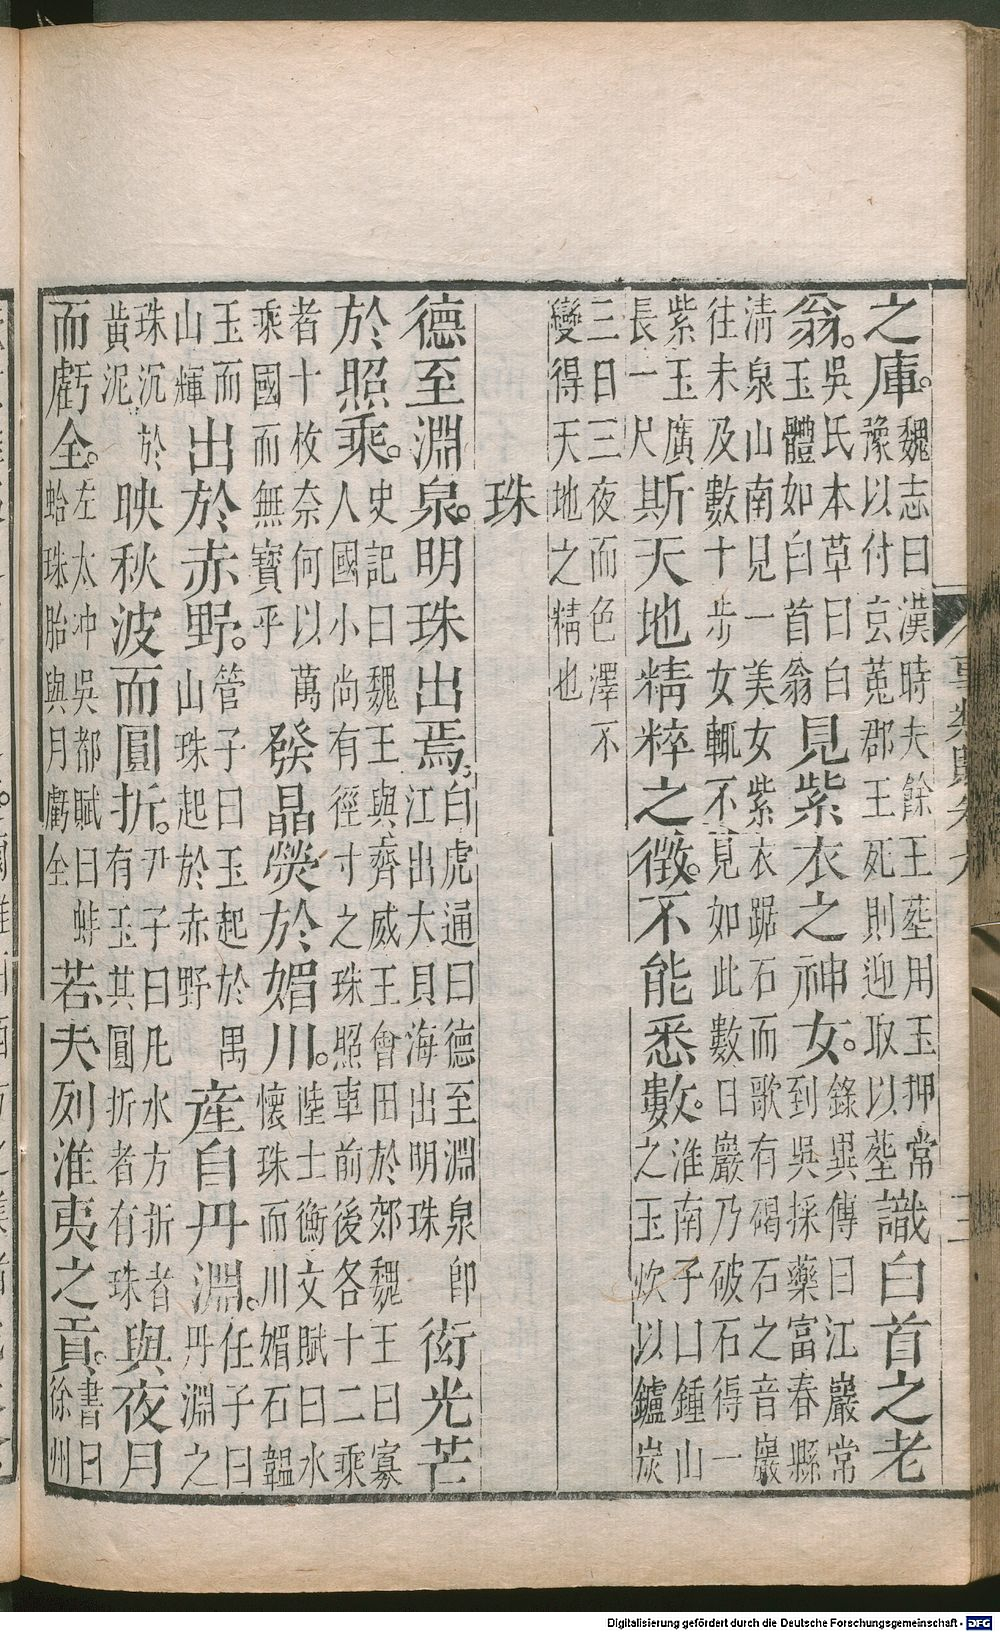 之庫。魏志曰漢時夫餘王塟用玉押常豫以付玄菟郡王死則迎取以塟識白首之老
翁。吳氏本草曰白玉體如白首翁見紫衣之神女。錄異傳曰江巖常到吳採藥富春縣
清泉山南見一美女紫衣踞石而歌有碣石之音巖往未及數十步女輒不見如此數日巖乃破石得一
紫玉廣長一尺斯天地精粹之徵。不能悉數。淮南子曰鍾山之玉炊以鑪炭
三日三夜而色澤不變得天地之精也
珠
德至淵泉。明珠出焉。白虎通曰德至淵泉即江出大貝海出明珠衒光芒
於照乘。史記曰魏王與齊威王會田於郊魏王曰寡人國小尚有徑寸之珠照車前後各十二乘
者十枚奈何以萬乘國而無寶乎發晶熒於媚川。陸士衡文賦曰水懷珠而川媚石韞
玉而山輝出於赤野。管子曰玉起於禺山珠起於赤野產自丹淵。任子曰丹淵之
珠沉於黃泥映秋波而圓折。尹子曰凡水方折者有玉其圓折者有珠與夜月
而虧全。左太冲吳都賦曰蚌蛤珠胎與月虧全若夫列淮夷之貢。書曰徐州
Digitalisierung gefördert durch die Deutsche Forschungsgemeinschaft - DFG